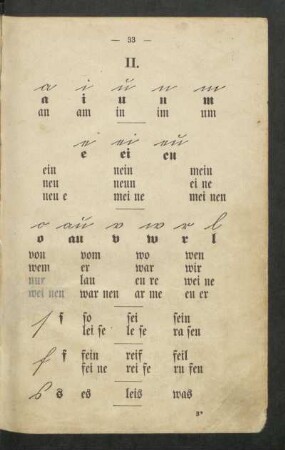 — 33 —
II.
a i u n m
a i u n m
an am in im um
e ei eu
e ei eu
ein nein mein
neu neun ei ne
neu e mei ne mei nen
o au v w r l
o au v w r l
von vom wo wen
wem er war wir
nur lau eu re wei ne
wei nen war nen ar me eu er
ſ ſ ſo ſei ſein
lei ſe le ſe ra ſen
f f fein reif feil
fei ne rei fe ru fen
s s es leis was
3*